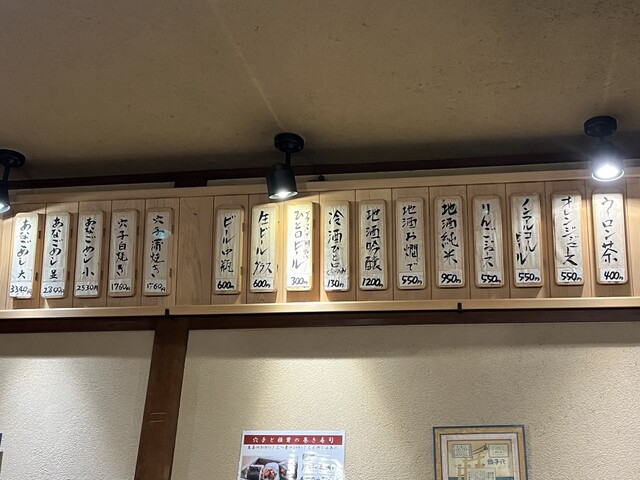 ウーロン茶
400円
オレンジジュース
550円
ノンアルコールビール
550円
りんごジュース
550円
地酒純米
950円
地酒お燗で
550円
地酒吟醸
1200円
冷酒
130円
ひと口ビール
300円
生ビールグラス
600円
ビール中瓶
600円
穴子蒲焼き
1760円
穴子白焼き
1760円
あなごめし 小
2530円
あなごめし 並
2800円
あなごめし 大
3340円
穴子と穂貴の巻き寿司